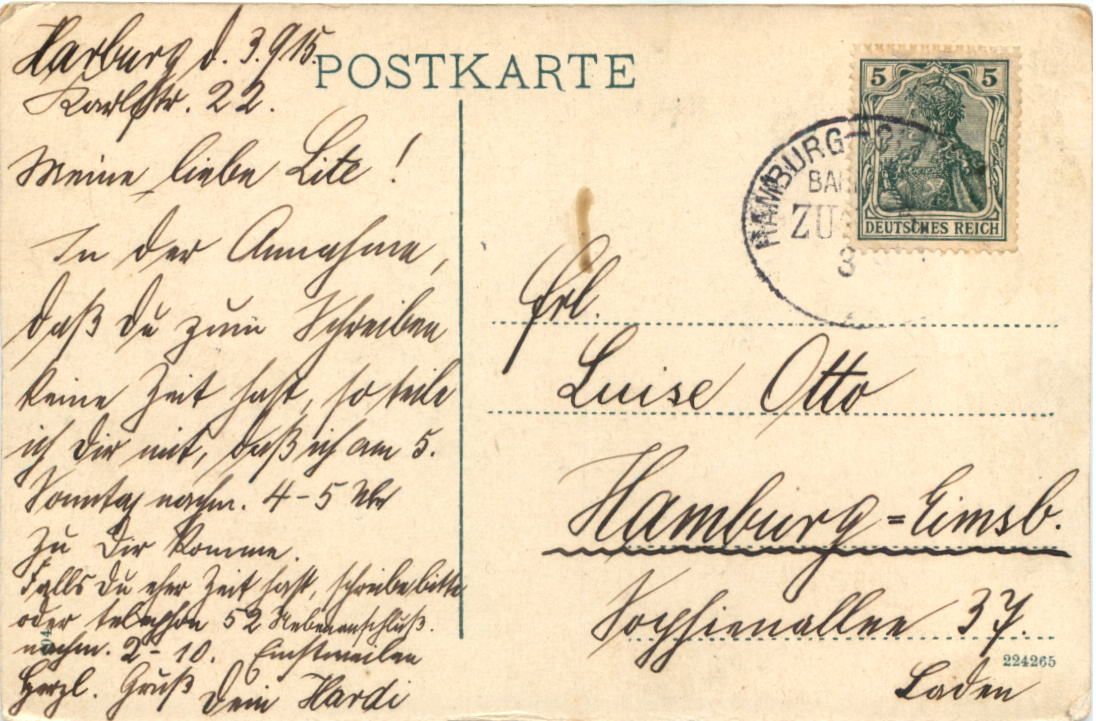 Harburg d. 3.9.15.
Karlstr. 22.
Meine liebe Lite!
In der Annahme,
daß Du zum Schreiben
keine Zeit hast, so teile
ich Dir mit, daß ich am 5.
Sonntag nachm. 4-5 Uhr
zu Dir komme.
Falls Du eher Zeit hast, schreibe bitte
oder telephon 52 Nebenanschluß.
nachm. 2-10. Einstweilen
Herzl. Gruß Dein Hardi
POSTKARTE
5 5
DEUTSCHES REICH
HAMBURG
ZU
3
Frl.
Luise Otto
Hamburg=Eimsb.
Sophienallee 37.
Laden
224265